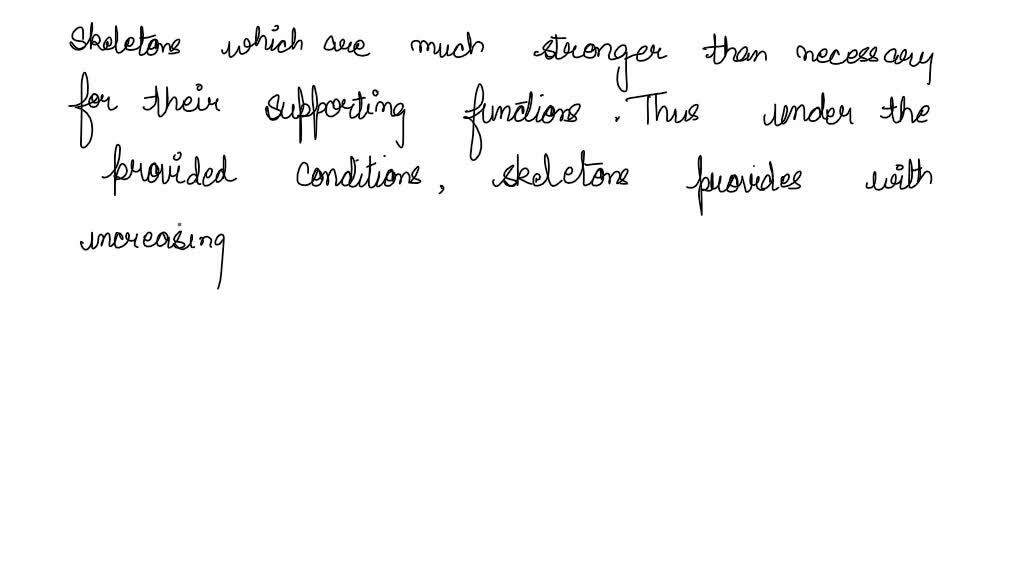 skeletons which are much stronger than necessary
for their supporting functions. Thus under the
provided conditions, skeletons provides with
increasing